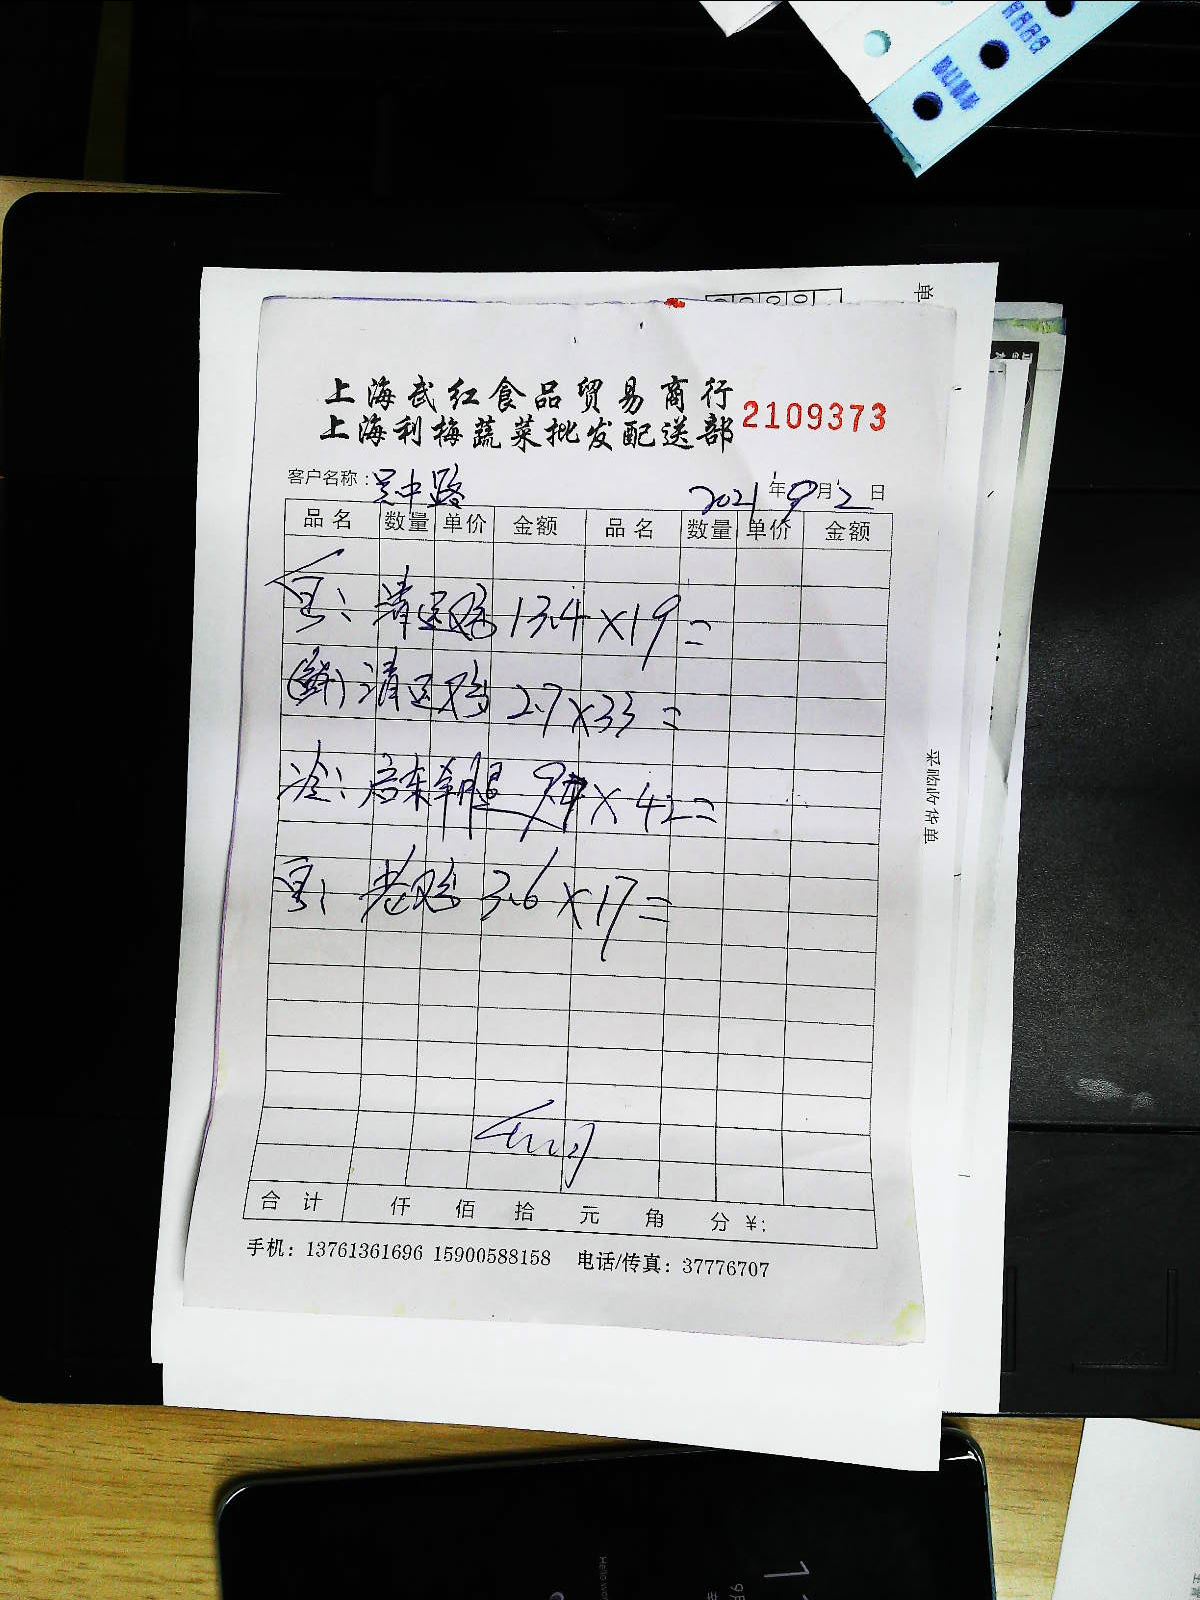 上海武红食品贸易商行
上海利梅蔬菜批发配送部
2109373
客户名称：吴中路 2021年9月2日
品名 数量 单价 金额 品名 数量 单价 金额
清远鸡 13.4×19=
(鲜)清远鸡 2.7×33=
冷：启东羊腿 9.4×42=
老鸡 3.6×17=
合计 仟 佰 拾 元 角 分 ¥:
手机：13761361696 15900588158 电话/传真：37776707
单
采购收货单